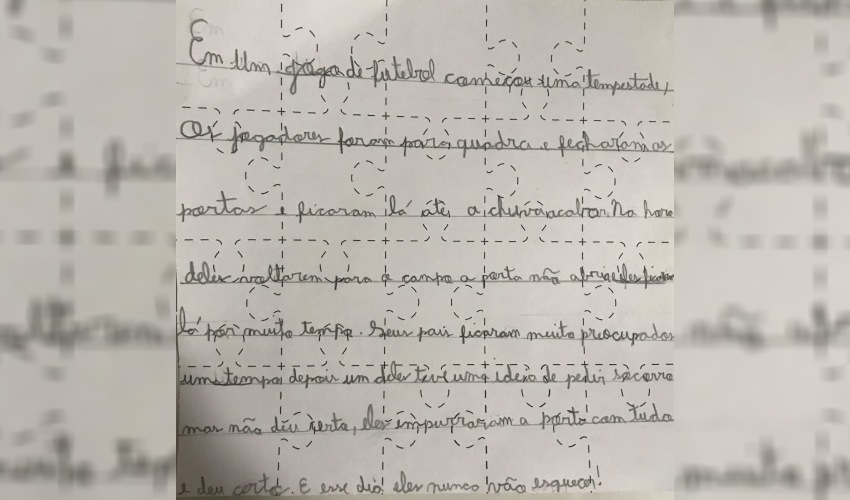 Em um jogo de futebol começou uma tempestade,
Os jogadores foram para quadra e fecharam as
portas e ficaram lá até a chuva acabar. Na hora
deles voltarem para o campo a porta não abria eles ficaram
lá por muito tempo. Seus pais ficaram muito preocupados
um tempo depois um deles teve uma ideia de pedir socorro
mas não deu certo, eles empurraram a porta com tudo
e deu certo. E esse dia eles nunca vão esquecer!